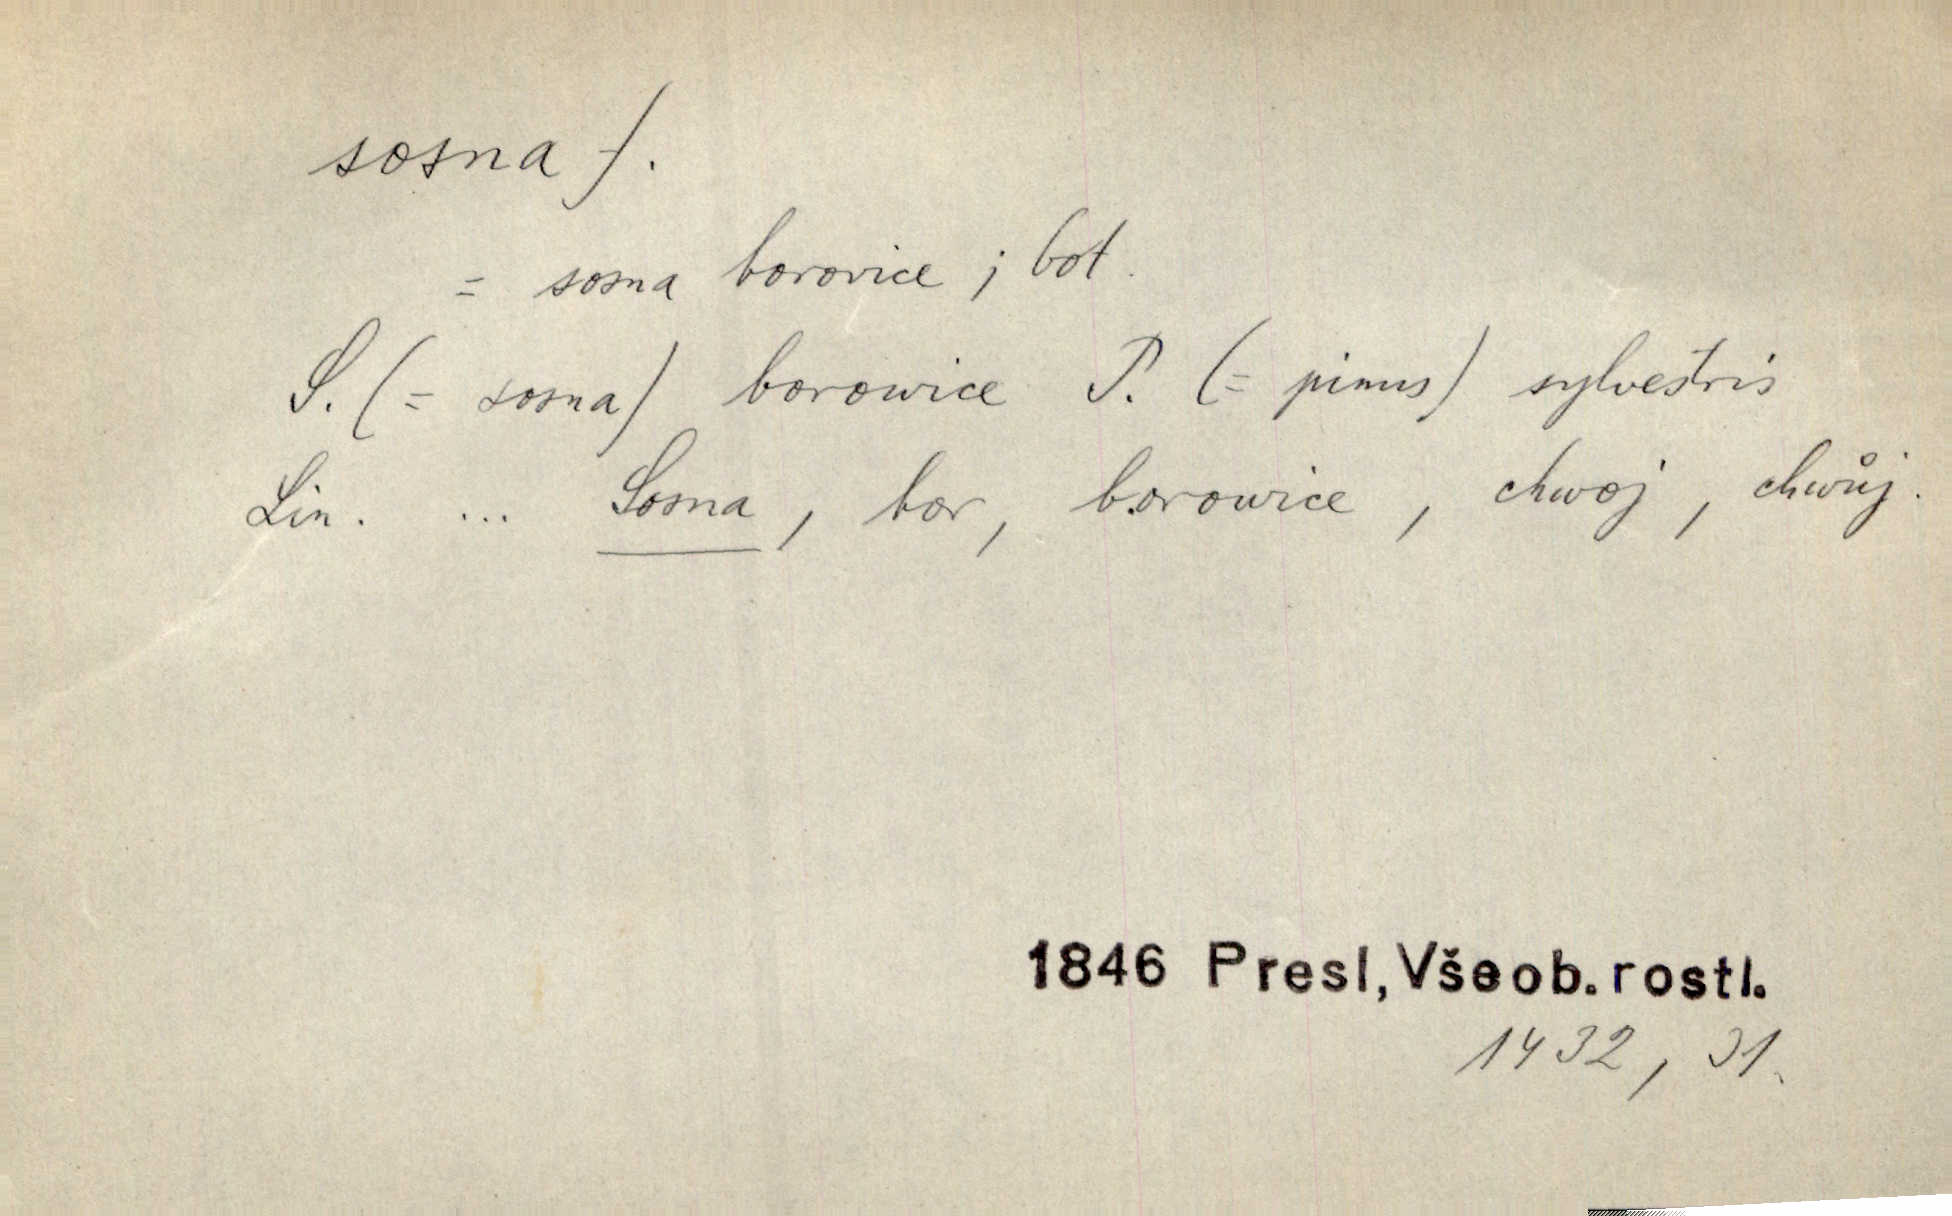 sosna f.
= sosna borovice ; bot.
S. (= sosna) borowice P. (= pinus) sylvestris
Lin. ... Sosna, bor, borowice, chwoj, chwůj.
1846 Presl, Všeob. rostl.
1432, 31.